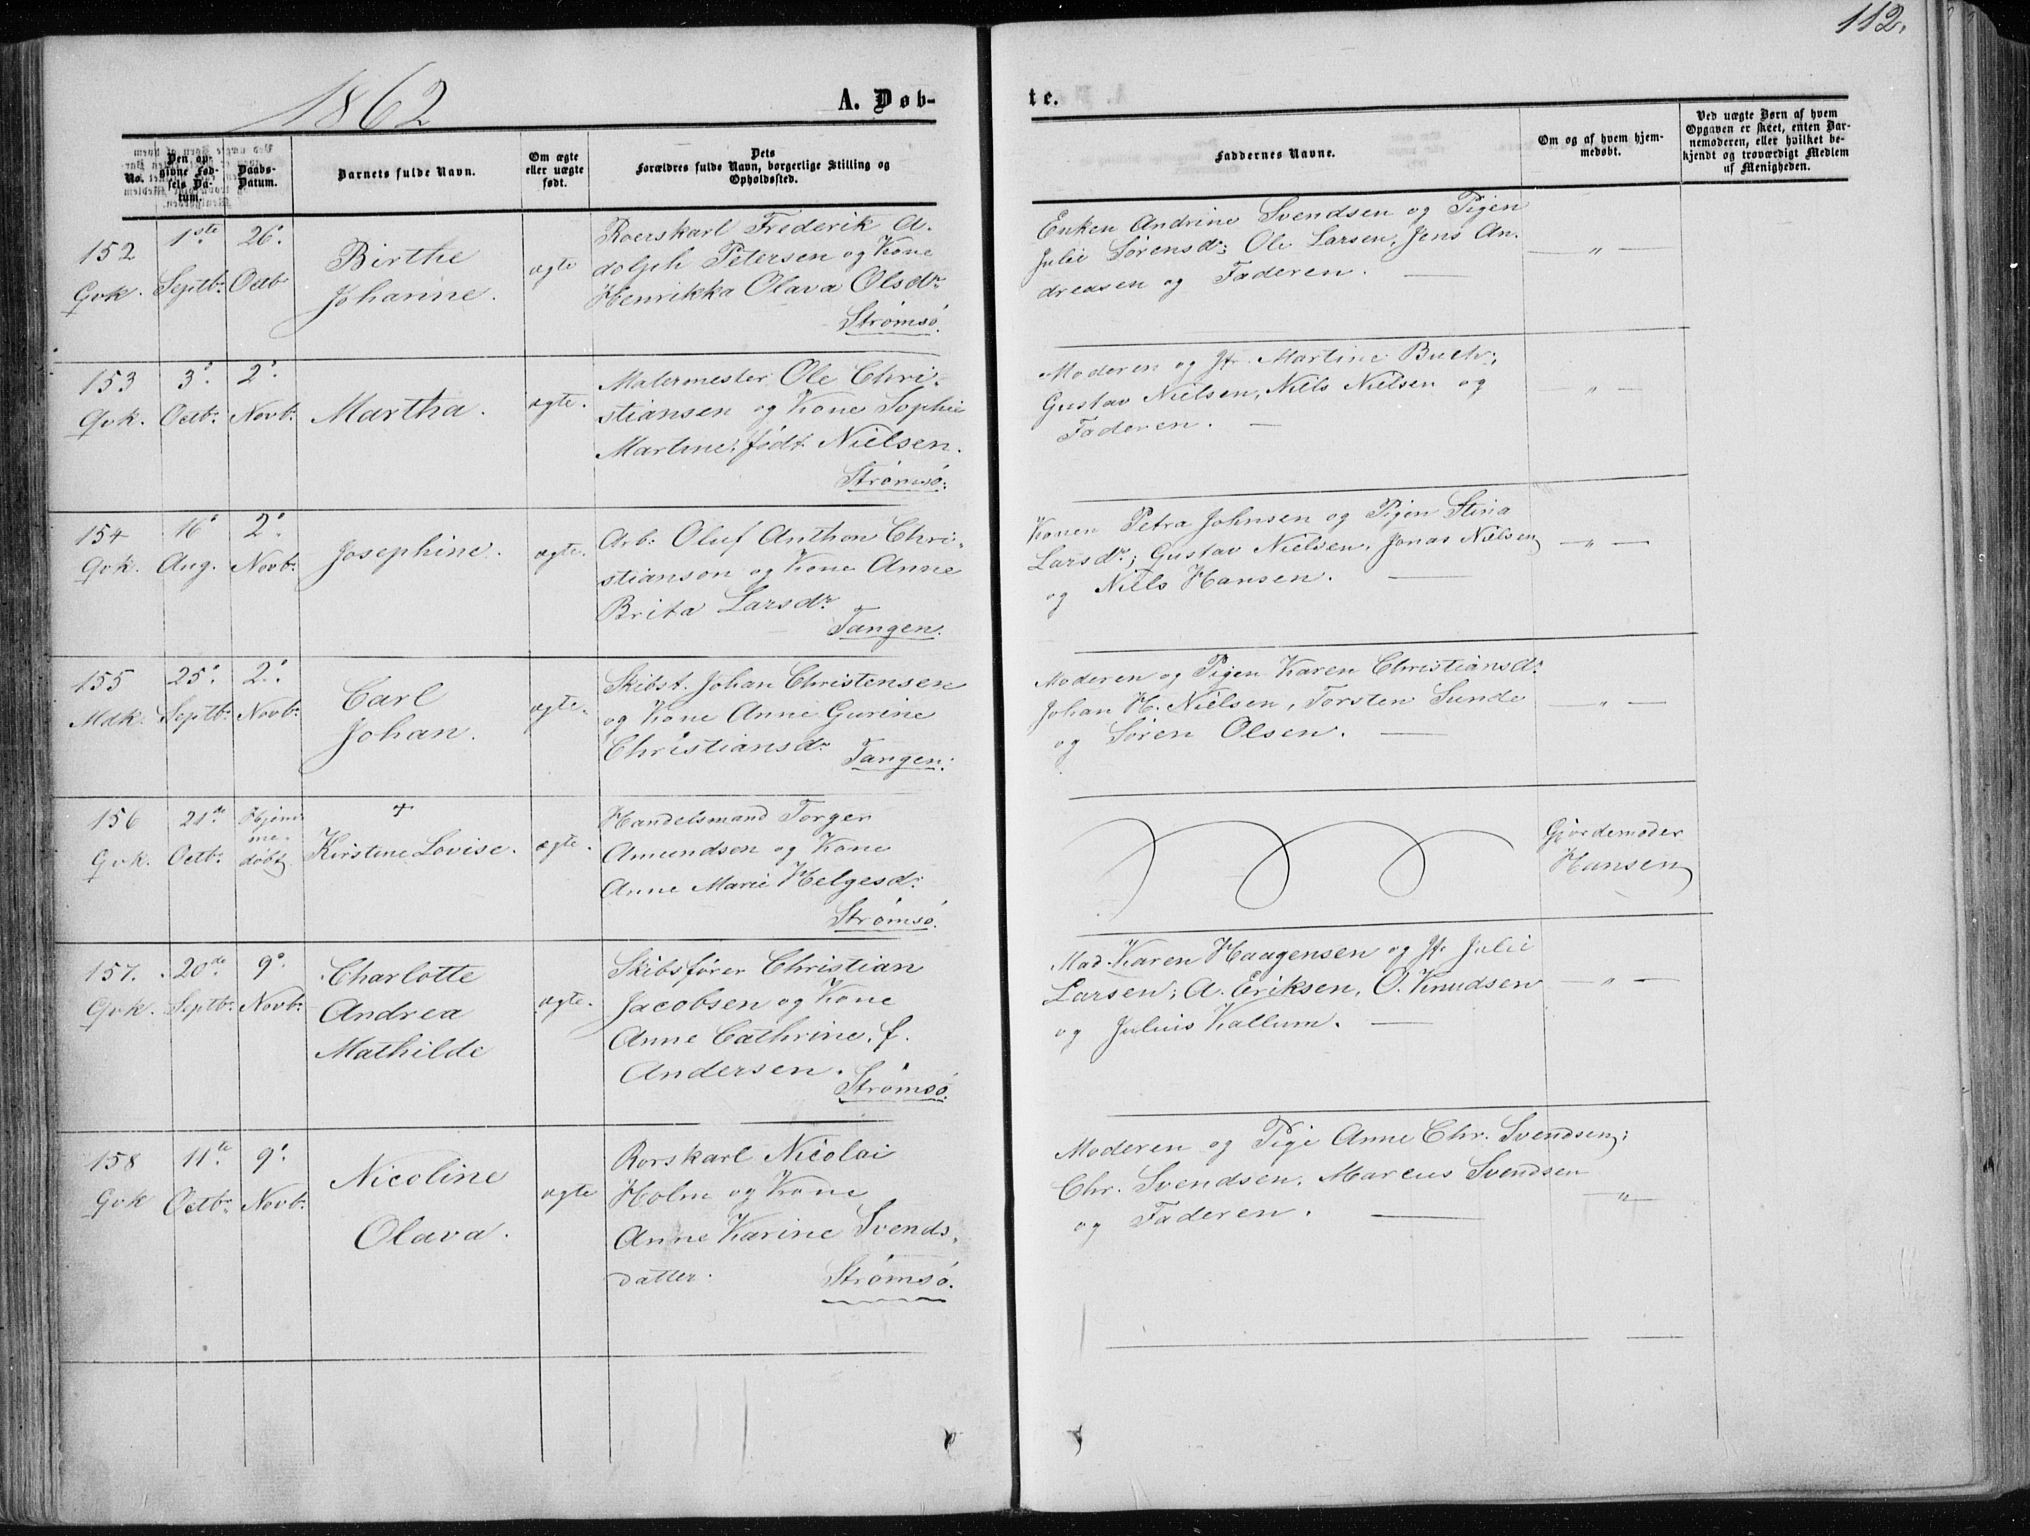 112.
1862
A. Døb-
te.
No.
Den op-
givne Fød-
sels Da-
tum.
Daabs-
Datum.
Barnets fulde Navn.
Om ægte
eller uægte
født.
Dets
Forældres fulde Navn, borgerlige Stilling og
Opholdssted.
Faddernes Navne.
Om og af hvem hjem-
medøbt.
Ved uægte Børn af hvem
Opgaven er skeet, enten Bar-
nemoderen, eller hvilket be-
kjendt og troværdigt Medlem
af Menigheden.
152
Qvk.
1ste
Septbr.
26.
Octb
Birthe
Johanne.
ægte
Roerskarl Frederik A.
dolph Petersen og Kone
Henrikka Olava Olsdr.
Strømsø.
Enken Andrine Svendsen og Pigen
Julie Sørensd.; Ole Larsen, Jens An.
dreasen og Faderen. —
— " —
153
Qvk.
3.
Octb.
2.
Novb.
Martha.
ægte.
Malermester Ole Chri.
stiansen og Kone Sophie
Martine, født Nielsen.
Strømsø.
Moderen og Jfr. Martine Buch;
Gustav Nielsen, Niels Nielsen og
Faderen. —
— " —
154
Qvk.
16.
Aug.
2.
Novb.
Josephine.
ægte.
Arb. Oluf Anthon Chri.
stianson og Kone Anne
Brita Larsdr.
Tangen.
Konen Petra Johnsen og Pigen Stina
Larsdr.; Gustav Nielsen, Jonas Nielsen
og Niels Hansen. —
— " —
155
Mdk.
25.
Septbr.
2.
Novb.
Carl
Johan.
ægte.
Skibst. Johan Christensen
og Kone Anne Gurine
Christiansdr.
Tangen.
Moderen og Pigen Karen Christiansd.
Johan H. Nielsen, Torsten Sunde
og Søren Olsen. —
— " —
156
Qvk.
21de
Octb.
Hjem-
me-
døbt
+
Kirstine Lovise.
ægte.
Handelsmand Torger
Amundsen og Kone
Anne Marie Helgesd.
Strømsø.
Gjordemoder
Hansen
157.
Qvk.
20de
Septbr.
9.
Novb.
Charlotte
Andrea
Mathilde
ægte.
Skibsfører Christian
Jacobsen og Kone
Anne Cathrine, f.
Andersen.
Strømsø.
Mad. Karen Haagensen og Jfr Julie
Larsen; A. Eriksen, O. Knudsen
og Julius Kallum. —
— " —
158
Qvk
11te
Octbr.
9.
Novb.
Nicoline
Olava.
ægte
Rorskarl Nicolai
Holm og Kone
Anne Karine Svends.
datter.
Strømsø.
Moderen og Pige Anne Chr. Svendsen;
Chr. Svendsen, Marcus Svendsen
og Faderen. —
— " —